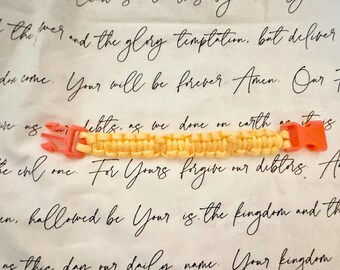 the ever
and the glory temptation, but deliver
come. Your will be forever. Amen. Our F
we as debts, as we done on earth as
the evil one. For Yours forgive our debtors. A
en, hallowed be Your is the kingdom and t
as this day our daily name. Your kingdom